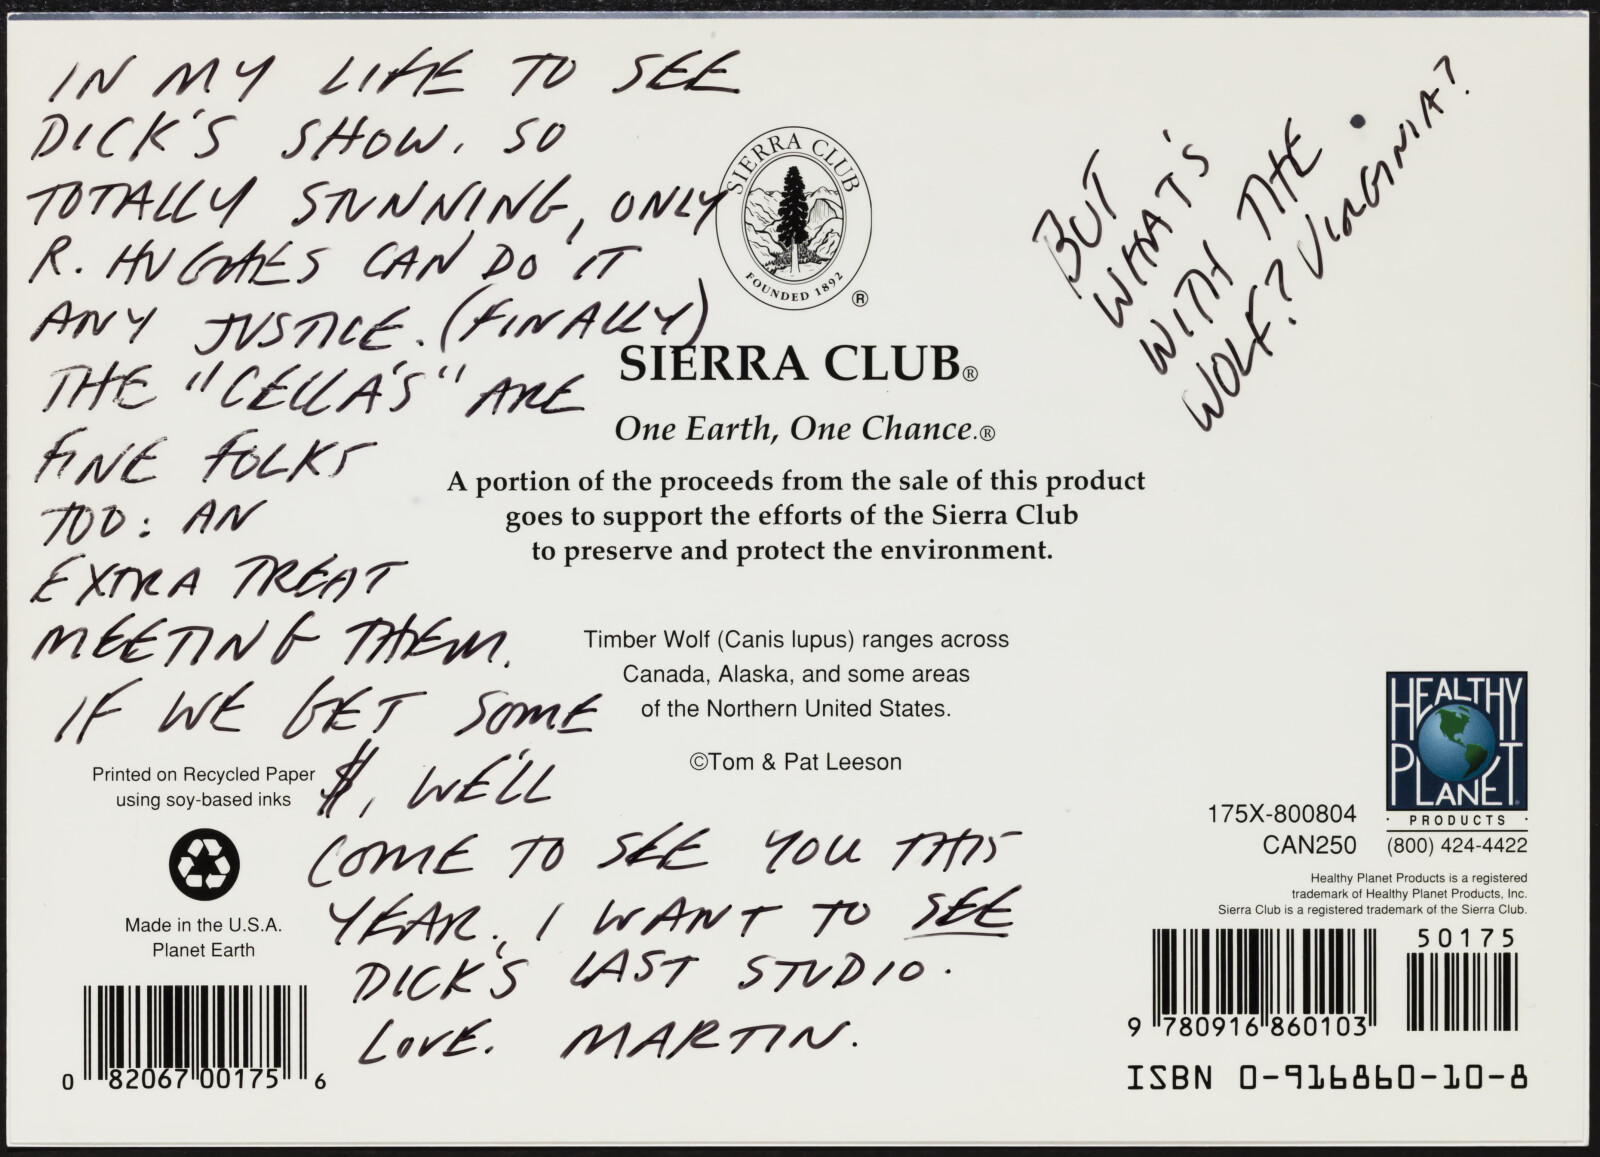 IN MY LIFE TO SEE
DICK'S SHOW. SO
TOTALLY STUNNING, ONLY
R. HUGHES CAN DO IT
ANY JUSTICE. (FINALLY)
THE "CELLA'S" ARE
FINE FOLKS
TOO: AN
EXTRA TREAT
MEETING THEM.
IF WE GET SOME
$, WE'LL
COME TO SEE YOU THIS
YEAR. I WANT TO SEE
DICK'S LAST STUDIO.
LOVE. MARTIN.
BUT
WHAT'S
WITH THE
WOLF? VIRGINIA?
SIERRA CLUB
FOUNDED 1892
®
SIERRA CLUB®
One Earth, One Chance.®
A portion of the proceeds from the sale of this product
goes to support the efforts of the Sierra Club
to preserve and protect the environment.
Timber Wolf (Canis lupus) ranges across
Canada, Alaska, and some areas
of the Northern United States.
©Tom & Pat Leeson
Printed on Recycled Paper
using soy-based inks
Made in the U.S.A.
Planet Earth
0 82067 00175 6
HEALTHY
PLANET
· PRODUCTS ·
(800) 424-4422
175X-800804
CAN250
Healthy Planet Products is a registered
trademark of Healthy Planet Products, Inc.
Sierra Club is a registered trademark of the Sierra Club.
50175
9 780916 860103
ISBN 0-916860-10-8